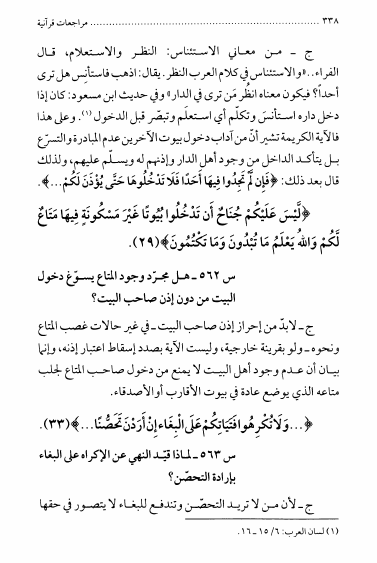 ٣٣٨ ........................................ مراجعات قرآنية
ج ـ من معاني الاستئناس: النظر والاستعلام، قال
الفراء.. «والاستئناس في كلام العرب النظر. يقال: اذهب فاستأنس هل ترى
أحداً؟ فيكون معناه انظُر مَن ترى في الدار» وفي حديث ابن مسعود: كان إذا
دخل داره استأنسَ وتكلّم أي استعلم وتبصّر قبل الدخول (١). وعلى هذا
فالآية الكريمة تشير أنّ من آداب دخول بيوت الآخرين عدم المبادرة والتسرّع
بل يتأكد الداخل من وجود أهل الدار وإذنهم له ويسلّم عليهم، ولذلك
قال بعد ذلك: ﴿فَإِن لَّمْ تَجِدُوا فِيهَا أَحَدًا فَلَا تَدْخُلُوهَا حَتَّى يُؤْذَنَ لَكُمْ...﴾.
﴿لَّيْسَ عَلَيْكُمْ جُنَاحٌ أَن تَدْخُلُوا بُيُوتًا غَيْرَ مَسْكُونَةٍ فِيهَا مَتَاعٌ
لَّكُمْ وَاللهُ يَعْلَمُ مَا تُبْدُونَ وَمَا تَكْتُمُونَ﴾(٢٩).
س ٥٦٢ ـ هل مجرّد وجود المتاع يسوّغ دخول
البيت من دون إذن صاحب البيت؟
ج ـ لابدّ من إحراز إذن صاحب البيت ـ في غير حالات غصب المتاع
ونحوه ـ ولو بقرينة خارجية، وليست الآية بصدد إسقاط اعتبار إذنه، وإنما
بيان أن عدم وجود أهل البيت لا يمنع من دخول صاحب المتاع لجلب
متاعه الذي يوضع عادة في بيوت الأقارب أو الأصدقاء.
﴿...وَلَا تُكْرِهُوا فَتَيَاتِكُمْ عَلَى الْبِغَاء إِنْ أَرَدْنَ تَحَصُّنًا...﴾(٣٣).
س ٥٦٣ ـ لماذا قيّد النهي عن الإكراه على البغاء
بإرادة التحصّن؟
ج ـ لأن من لا تريد التحصّن وتندفع للبغاء لا يتصور في حقها
(١) لسان العرب: ٦/ ١٥ ـ ١٦.